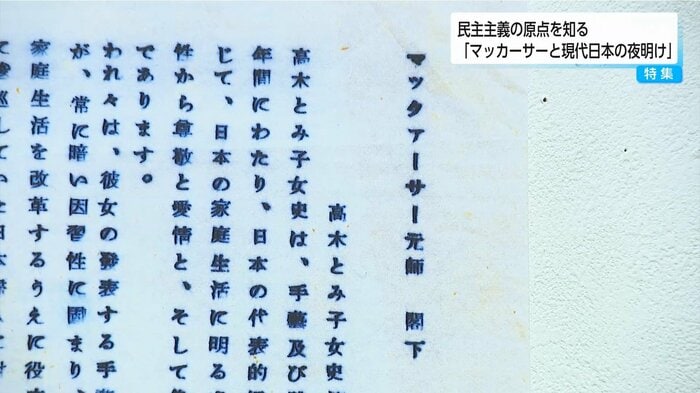 民主主義の原点を知る
「マッカーサーと現代日本の夜明け」
特集
マックァーサー元師 閣下
高木とみ子女史
高木とみ子女史は、手藝及び
年間にわたり、日本の代表的
じて、日本の家庭生活に明る
性から尊敬と愛情と、そして
であります。
われ々は、彼女の発表する手
が、常に暗い因習性に固まり、
家庭生活を改革するうえに役